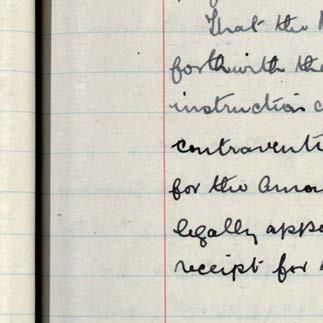 That the
forthwith the
instruction
contraventi
for the Amou
legally appo
receipt for